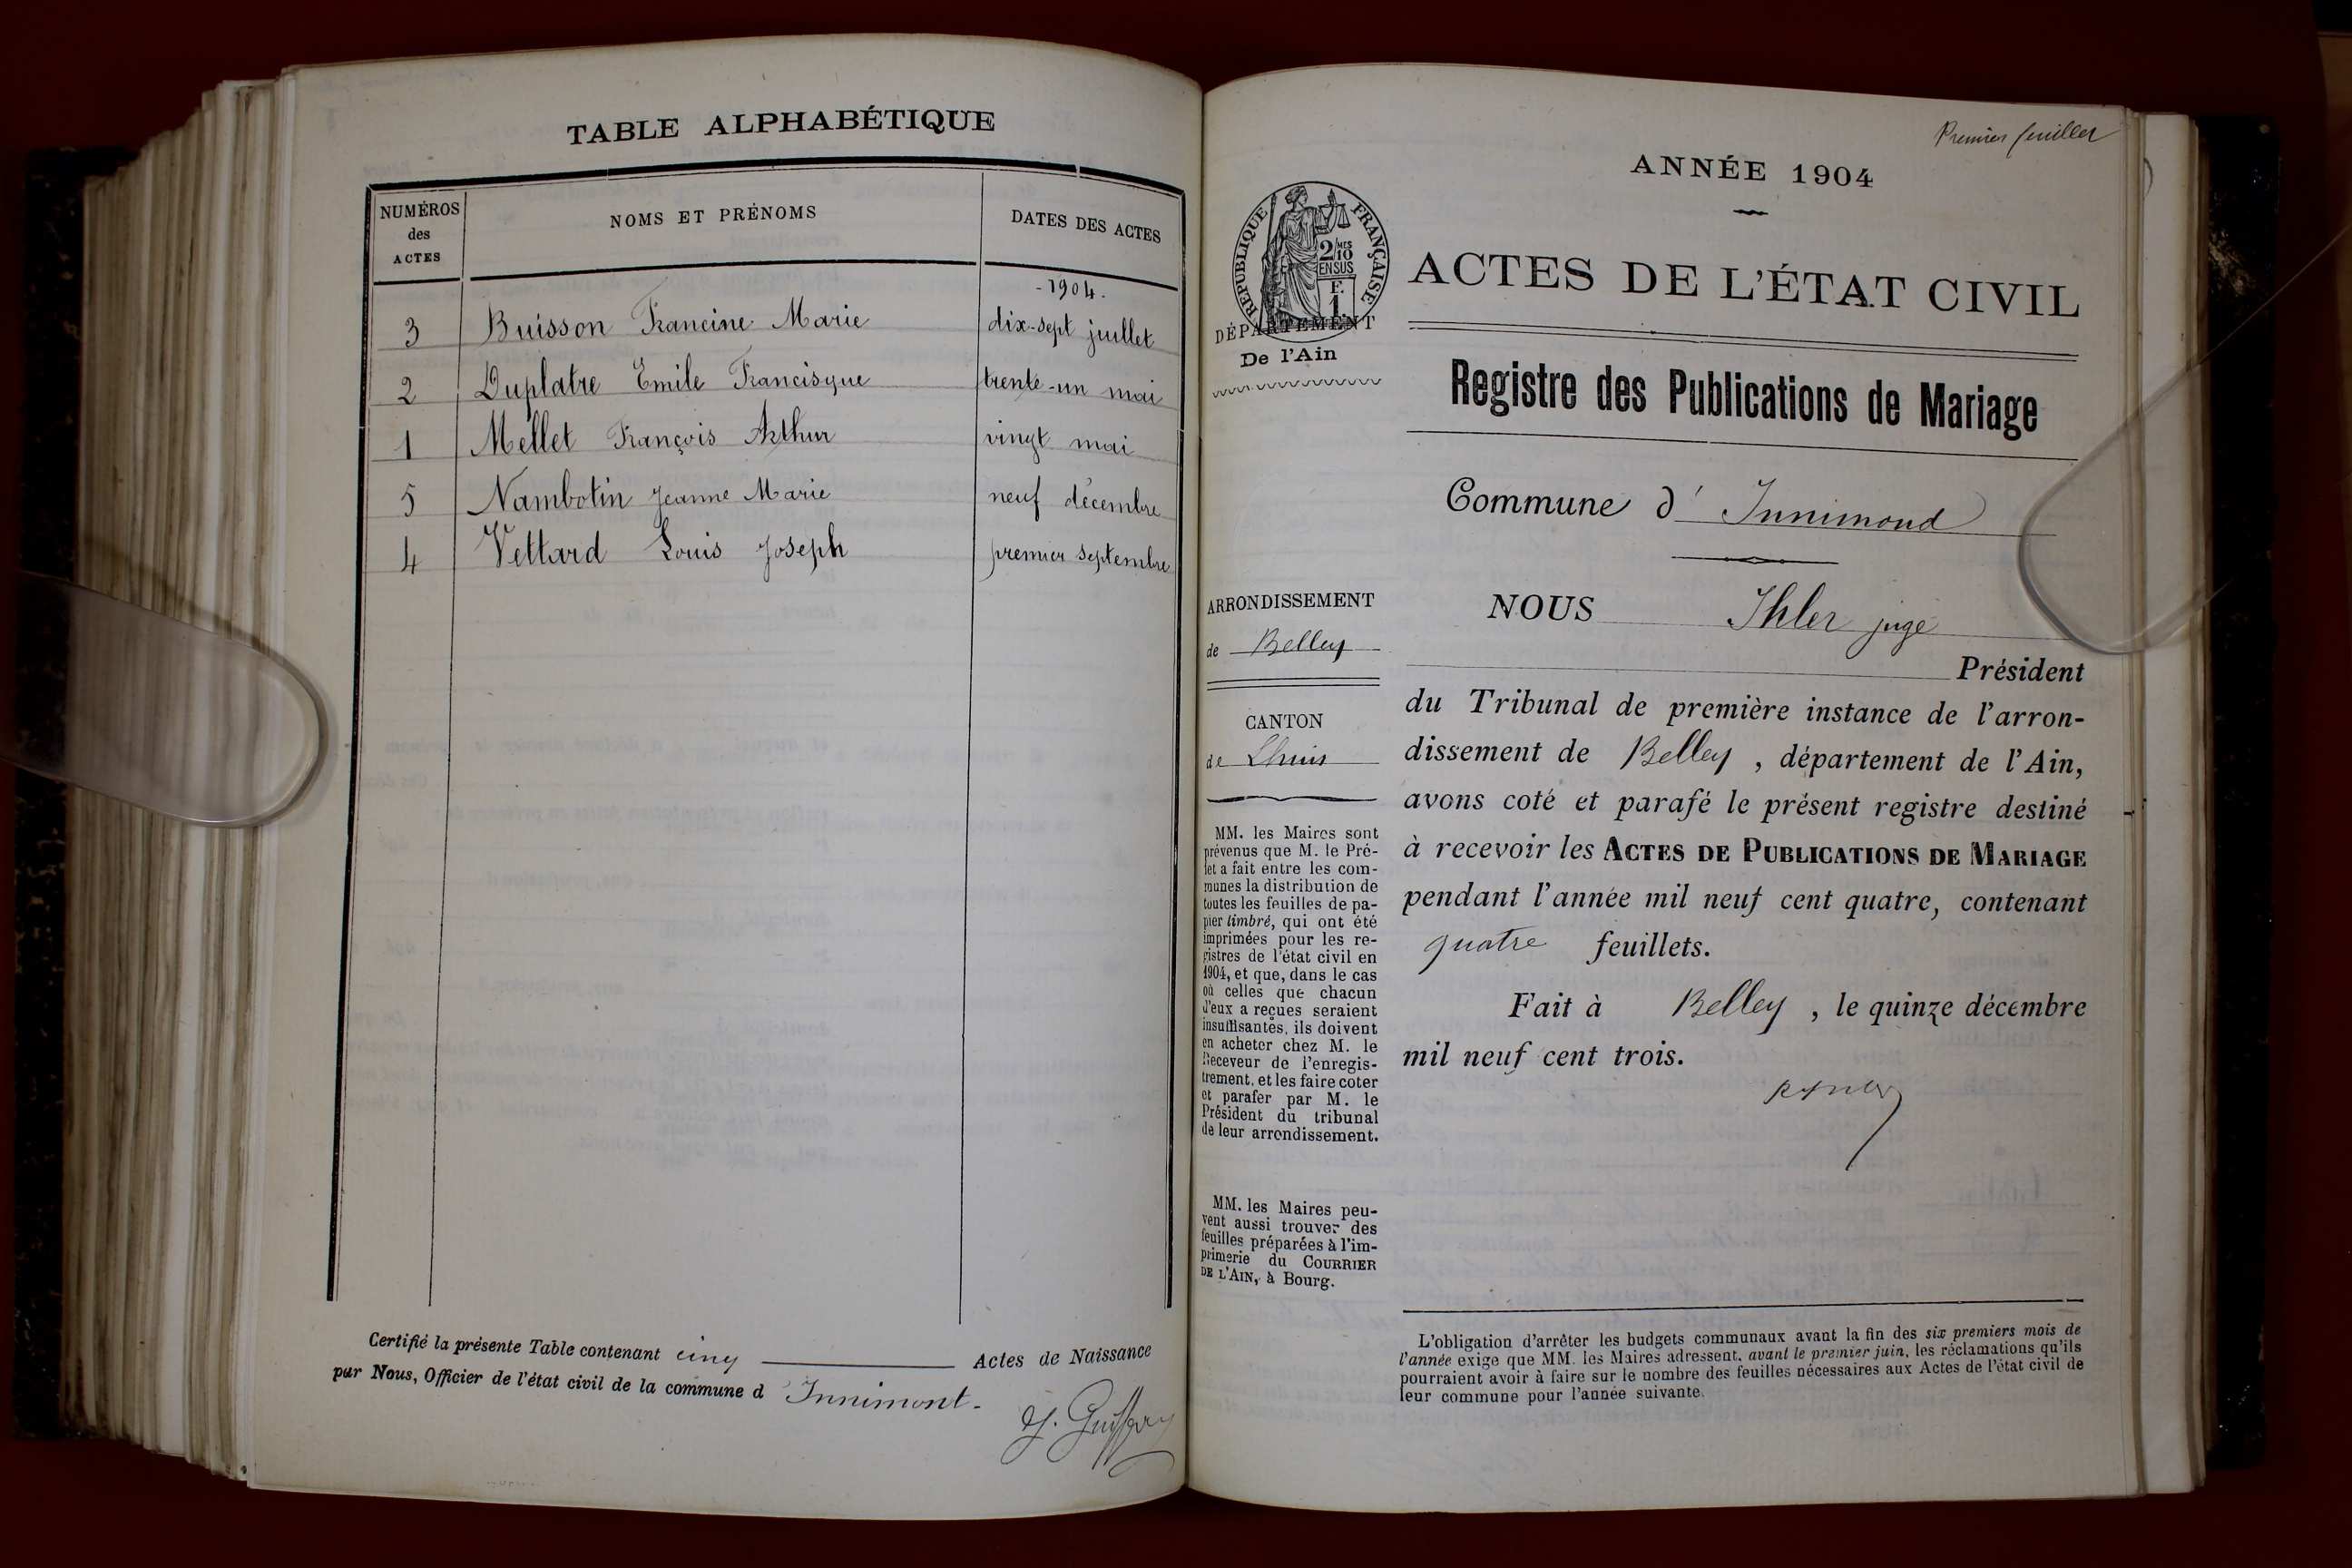 TABLE ALPHABÉTIQUE
NUMÉROS
des
ACTES
NOMS ET PRÉNOMS
DATES DES ACTES
- 1904 -
3 Buisson Francine Marie dix-sept juillet
2 Duplatre Emile Francisque trente-un mai
1 Mellet François Arthur vingt mai
5 Nambotin Jeanne Marie neuf décembre
4 Vettard Louis Joseph premier septembre
Certifié la présente Table contenant cinq Actes de Naissance
par Nous, Officier de l'état civil de la commune d Innimont.
Premier feuillet
ANNÉE 1904
RÉPUBLIQUE FRANÇAISE
2/10 MES
EN SUS
F.
1
DÉPARTEMENT
De l'Ain
ACTES DE L'ÉTAT CIVIL
Registre des Publications de Mariage
Commune d' Innimond
ARRONDISSEMENT
de Belley
CANTON
de Lhuis
MM. les Maires sont
prévenus que M. le Pré-
fet a fait entre les com-
munes la distribution de
toutes les feuilles de pa-
pier timbré, qui ont été
imprimées pour les re-
gistres de l'état civil en
1904, et que, dans le cas
où celles que chacun
d'eux a reçues seraient
insuffisantes, ils doivent
en acheter chez M. le
Receveur de l'enregis-
trement, et les faire coter
et parafer par M. le
Président du tribunal
de leur arrondissement.
MM. les Maires peu-
vent aussi trouver des
feuilles préparées à l'im-
primerie du COURRIER
DE L'AIN, à Bourg.
NOUS Ihler juge
Président
du Tribunal de première instance de l'arron-
dissement de Belley , département de l'Ain,
avons coté et parafé le présent registre destiné
à recevoir les ACTES DE PUBLICATIONS DE MARIAGE
pendant l'année mil neuf cent quatre, contenant
quatre feuillets.
Fait à Belley , le quinze décembre
mil neuf cent trois.
L'obligation d'arrêter les budgets communaux avant la fin des six premiers mois de
l'année exige que MM. les Maires adressent, avant le premier juin, les réclamations qu'ils
pourraient avoir à faire sur le nombre des feuilles nécessaires aux Actes de l'état civil de
leur commune pour l'année suivante.